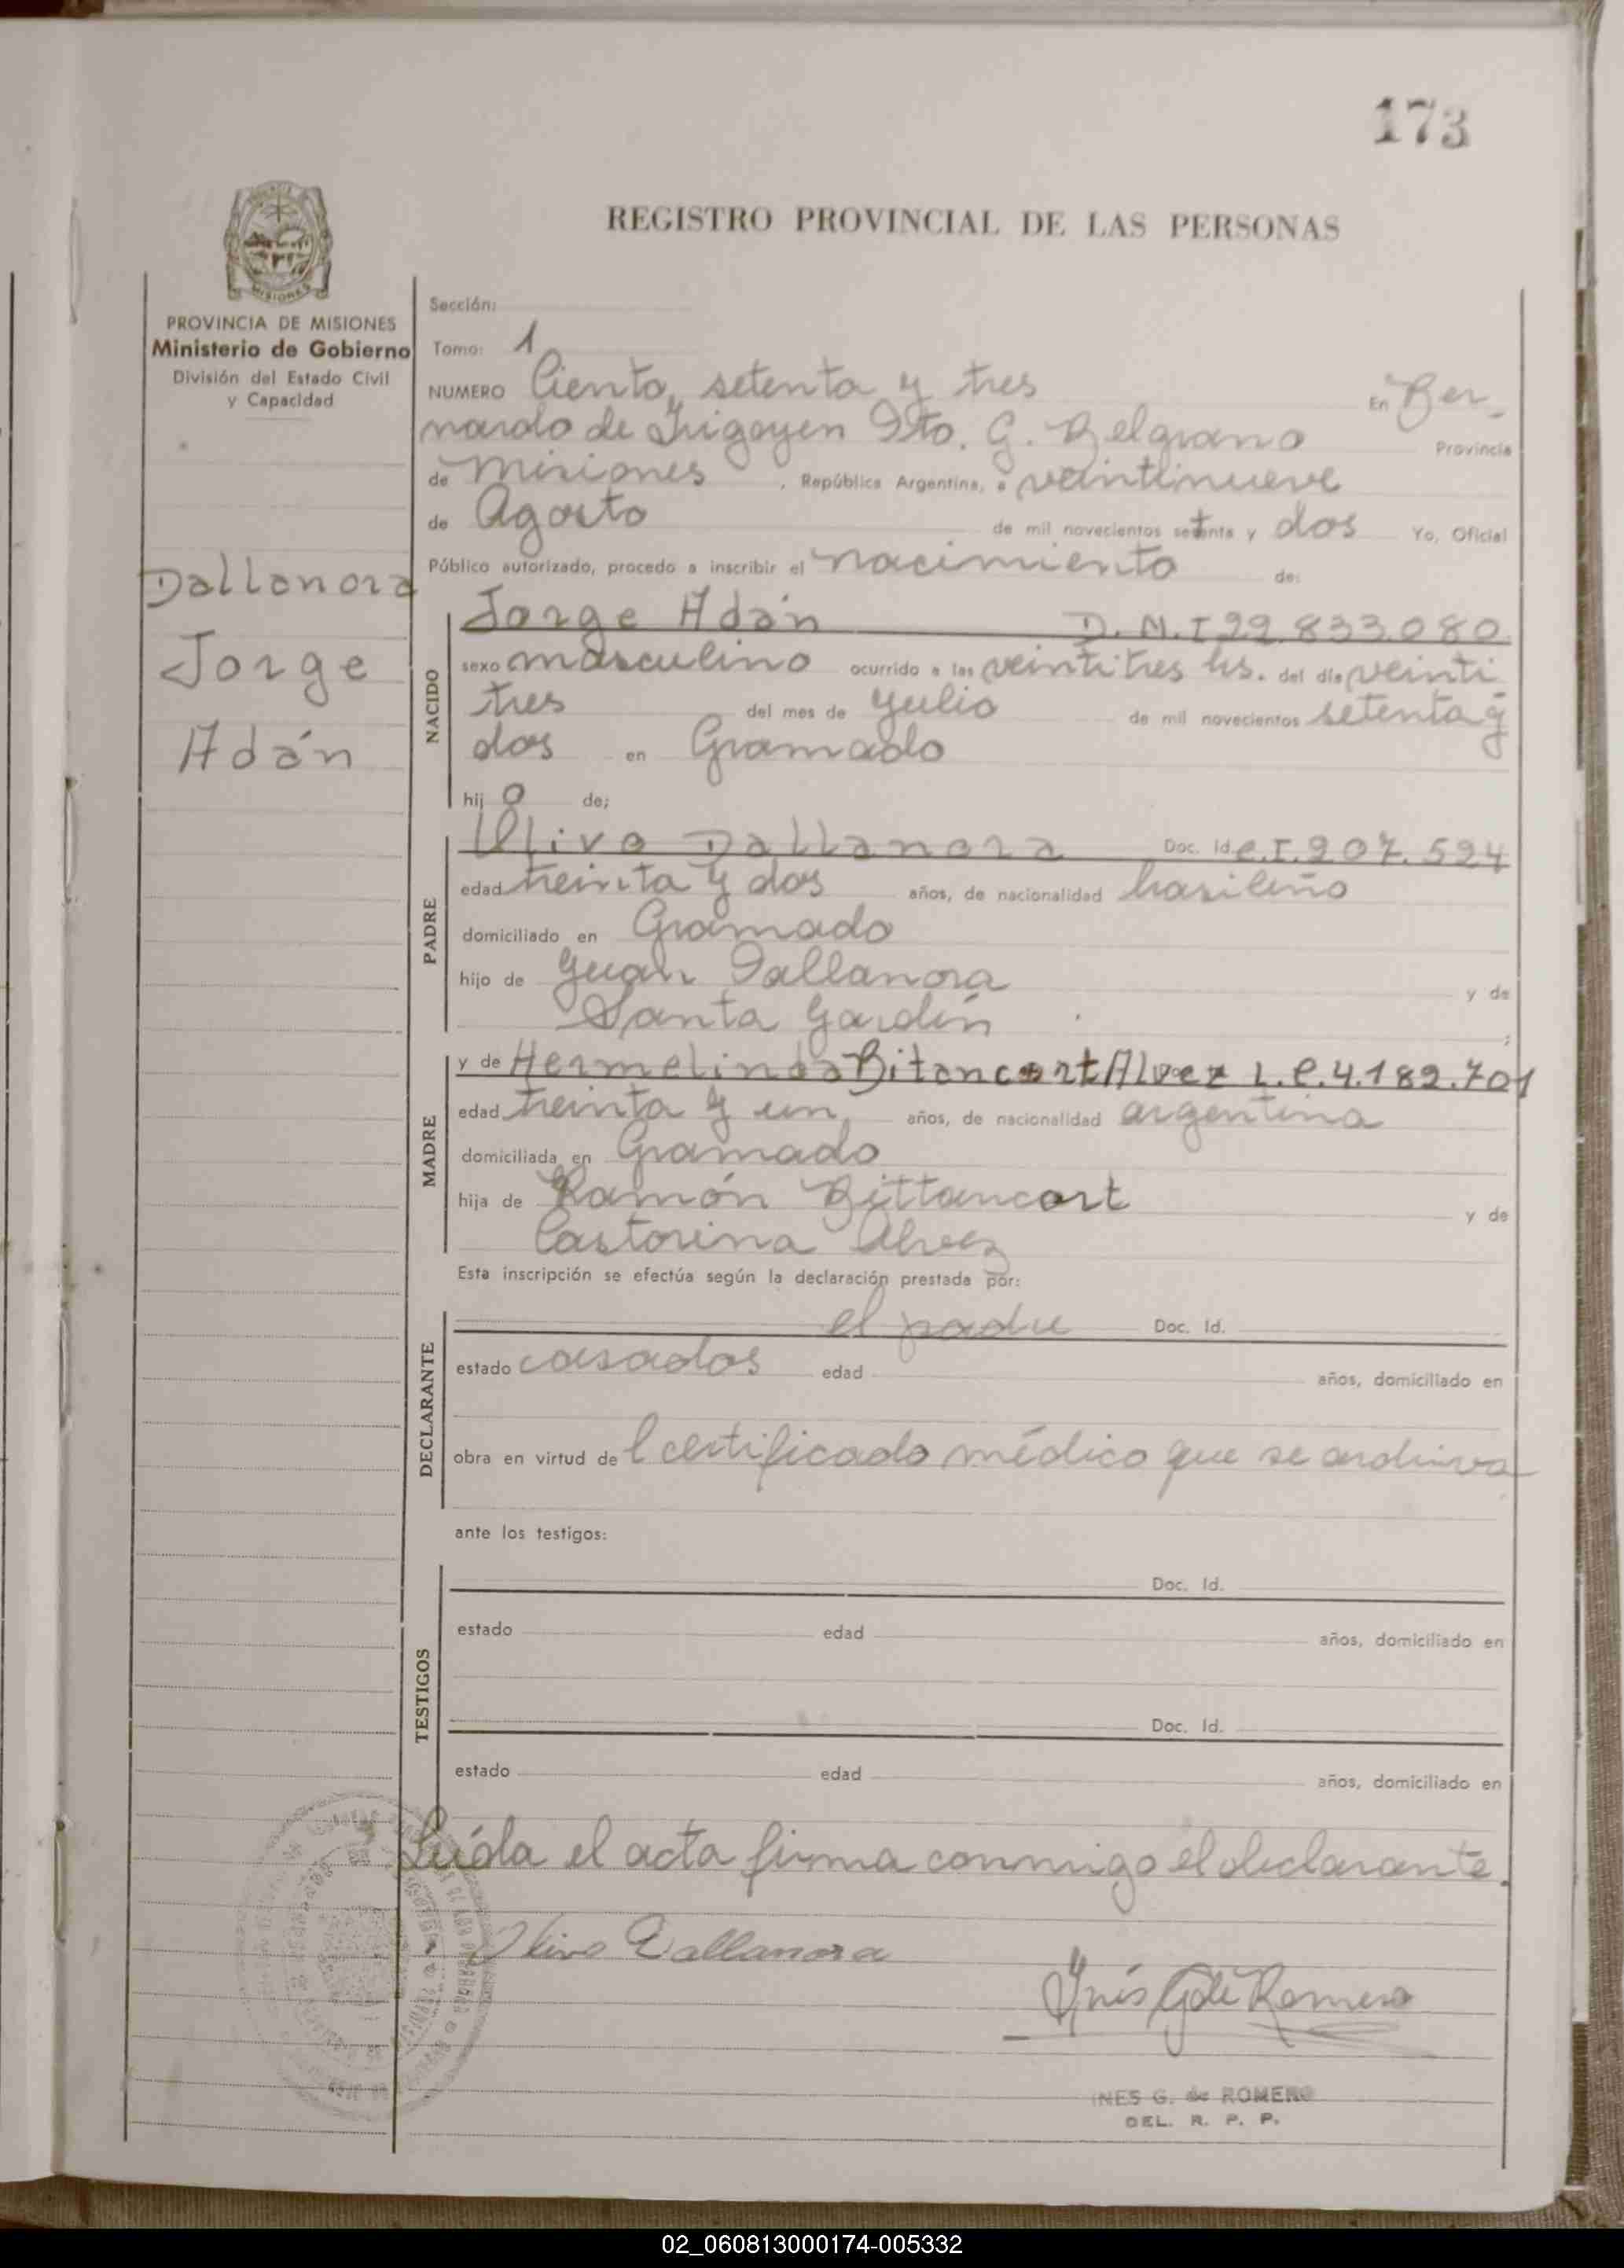 173
REGISTRO PROVINCIAL DE LAS PERSONAS
MISIONES
PROVINCIA DE MISIONES
Ministerio de Gobierno
División del Estado Civil
y Capacidad
Dallanora
Jorge
Adán
Sección:
Tomo: 1
NUMERO Ciento setenta y tres En Ber-
nardo de Irigoyen Dto. G. Belgrano Provincia
de Misiones, República Argentina, a veintinueve
de Agosto de mil novecientos setenta y dos Yo, Oficial
Público autorizado, procedo a inscribir el nacimiento de:
NACIDO
Jorge Adán D.N.I 22.833.080
sexo masculino ocurrido a las veintitres hs. del día veinti
tres del mes de Julio de mil novecientos setenta y
dos en Gramado
hij o de;
PADRE
Olivo Dallanora Doc. Id. C.I. 207.524
edad treinta y dos años, de nacionalidad brasileño
domiciliado en Gramado
hijo de Juan Dallanora y de
Santa Gardin ;
MADRE
y de Hermelinda Bitancort Alvez L.C. 4.182.701
edad treinta y un años, de nacionalidad argentina
domiciliada en Gramado
hija de Ramón Bittancort y de
Castorina Alvez
Esta inscripción se efectúa según la declaración prestada por:
DECLARANTE
el padre Doc. Id.
estado casados edad años, domiciliado en
obra en virtud del certificado médico que se archiva
ante los testigos:
TESTIGOS
Doc. Id.
estado edad años, domiciliado en
Doc. Id.
estado edad años, domiciliado en
Leída el acta firma conmigo el declarante.
Olivo Dallanora
Inés G de Romero
INES G. de ROMERO
DEL. R. P. P.
02_060813000174-005332